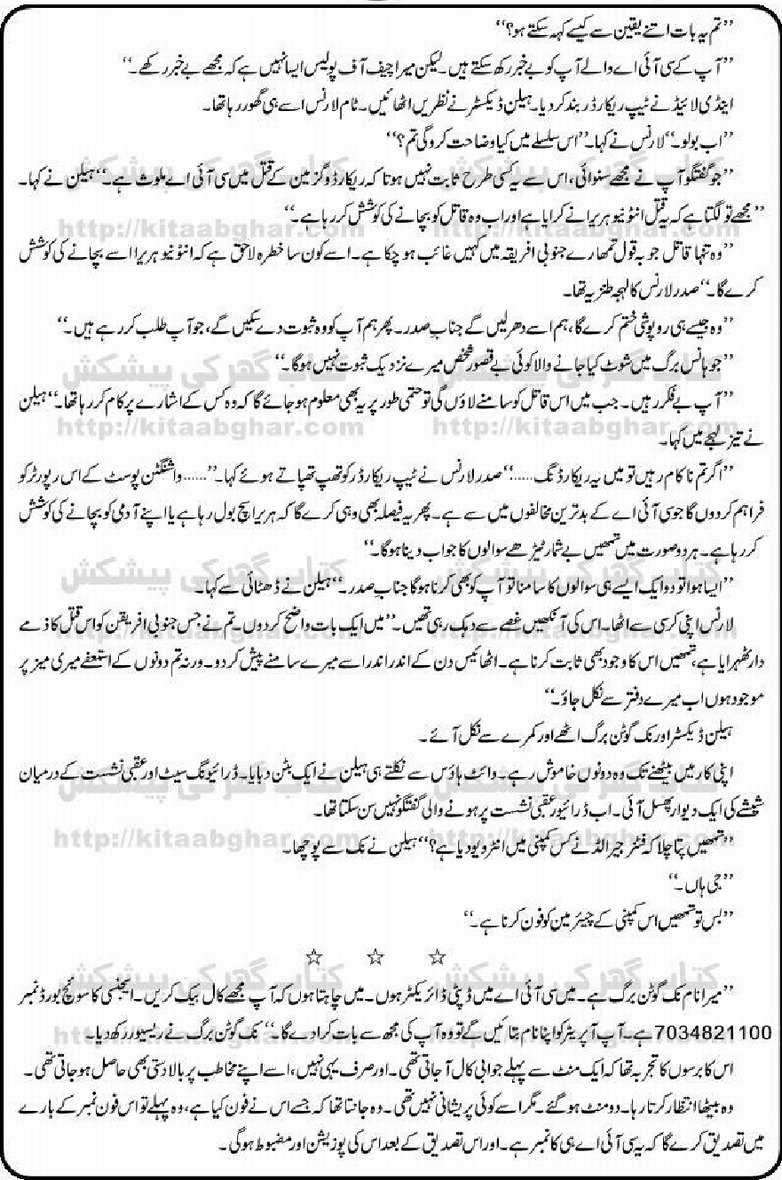 ’’تم یہ بات اتنے یقین سے کیسے کہہ سکتے ہو؟‘‘
’’آپ کے سی آئی اے والے آپ کو بے خبر رکھ سکتے ہیں۔ لیکن میرا چیف آف پولیس ایسا نہیں ہے کہ مجھے بے خبر رکھے۔‘‘
اینڈی لائیڈ نے ٹیپ ریکارڈر بند کر دیا۔ ہیلن ڈیکسٹر نے نظریں اٹھائیں۔ ٹام لارنس اسے ہی گھور رہا تھا۔
’’اب بولو۔‘‘ لارنس نے کہا۔ ’’اس سلسلے میں کیا وضاحت کرو گی تم؟‘‘
’’جو گفتگو آپ نے مجھے سنوائی، اس سے یہ کسی طرح ثابت نہیں ہوتا کہ ریکارڈو گزمین کے قتل میں سی آئی اے ملوث ہے۔‘‘ ہیلن نے کہا۔
’’مجھے تو لگتا ہے کہ یہ قتل انٹونیو ہریرا نے کرایا ہے اور اب وہ قاتل کو بچانے کی کوشش کر رہا ہے۔‘‘
’’وہ تنہا قاتل جو بہ قول تمھارے جنوبی افریقہ میں کہیں غائب ہو چکا ہے۔ اسے کون سا خطرہ لاحق ہے کہ انٹونیو ہریرا اسے بچانے کی کوشش
کرے گا۔‘‘ صدر لارنس کا لہجہ طنزیہ تھا۔
’’وہ جیسے ہی روپوشی ختم کرے گا، ہم اسے دھر لیں گے جناب صدر۔ پھر ہم آپ کو وہ ثبوت دے سکیں گے، جو آپ طلب کر رہے ہیں۔‘‘
’’جوہانس برگ میں شوٹ کیا جانے والا کوئی بے قصور شخص میرے نزدیک ثبوت نہیں ہو گا۔‘‘
’’آپ بے فکر رہیں۔ جب میں اس قاتل کو سامنے لاؤں گی تو حتمی طور پر یہ بھی معلوم ہو جائے گا کہ وہ کس کے اشارے پر کام کر رہا تھا۔‘‘ ہیلن
نے تیز لہجے میں کہا۔
’’اگر تم ناکام رہیں تو میں یہ ریکارڈنگ......‘‘ صدر لارنس نے ٹیپ ریکارڈر کو تھپ تھپاتے ہوئے کہا۔ ’’...... واشنگٹن پوسٹ کے اس رپورٹر کو
فراہم کر دوں گا جو سی آئی اے کے بدترین مخالفوں میں سے ہے۔ پھر یہ فیصلہ بھی وہی کرے گا کہ ہریرا سچ بول رہا ہے یا اپنے آدمی کو بچانے کی کوشش
کر رہا ہے۔ ہر دو صورت میں تمھیں بے شمار ٹیڑھے سوالوں کا جواب دینا ہو گا۔‘‘
’’ایسا ہوا تو دو ایک ایسے ہی سوالوں کا سامنا تو آپ کو بھی کرنا ہو گا جناب صدر۔‘‘ ہیلن نے ڈھٹائی سے کہا۔
لارنس اپنی کرسی سے اٹھا۔ اس کی آنکھیں غصے سے دہک رہی تھیں۔ ’’میں ایک بات واضح کر دوں۔ تم نے جس جنوبی افریقن کو اس قتل کا ذمے
دار ٹھہرایا ہے، تمھیں اس کا وجود بھی ثابت کرنا ہے۔ اٹھائیس دن کے اندر اندر اسے میرے سامنے پیش کر دو۔ ورنہ تم دونوں کے استعفے میری میز پر
موجود ہوں اب میرے دفتر سے نکل جاؤ۔‘‘
ہیلن ڈیکسٹر اور نک گوٹن برگ اٹھے اور کمرے سے نکل آئے۔
اپنی کار میں بیٹھنے تک وہ دونوں خاموش رہے۔ وائٹ ہاؤس سے نکلتے ہی ہیلن نے ایک بٹن دبایا۔ ڈرائیونگ سیٹ اور عقبی نشست کے درمیان
شیشے کی ایک دیوار پھسل آئی۔ اب ڈرائیور عقبی نشست پر ہونے والی گفتگو نہیں سن سکتا تھا۔
’’تمھیں پتا چلا کہ فٹز جیرالڈ نے کس کمپنی میں انٹرویو دیا ہے؟‘‘ ہیلن نے نک سے پوچھا۔
’’جی ہاں۔‘‘
’’بس تو تمھیں اس کمپنی کے چیئرمین کو فون کرنا ہے۔‘‘
☆ ☆ ☆
’’میرا نام نک گوٹن برگ ہے۔ میں سی آئی اے میں ڈپٹی ڈائریکٹر ہوں۔ میں چاہتا ہوں کہ آپ مجھے کال بیک کریں۔ ایجنسی کا سوئچ بورڈ نمبر
7034821100 ہے۔ آپ آپریٹر کو اپنا نام بتائیں گے تو وہ آپ کی مجھ سے بات کرا دے گا۔‘‘ نک گوٹن برگ نے ریسیور رکھ دیا۔
اس کا برسوں کا تجربہ تھا کہ ایک منٹ سے پہلے جوابی کال آ جاتی تھی۔ اور صرف یہی نہیں، اسے اپنے مخاطب پر بالا دستی بھی حاصل ہو جاتی تھی۔
وہ بیٹھا انتظار کرتا رہا۔ دو منٹ ہو گئے۔ مگر اسے کوئی پریشانی نہیں تھی۔ وہ جانتا تھا کہ جسے اس نے فون کیا ہے، وہ پہلے تو اس فون نمبر کے بارے
میں تصدیق کرے گا کہ یہ سی آئی اے ہی کا نمبر ہے۔ اور اس تصدیق کے بعد اس کی پوزیشن اور مضبوط ہو گی۔